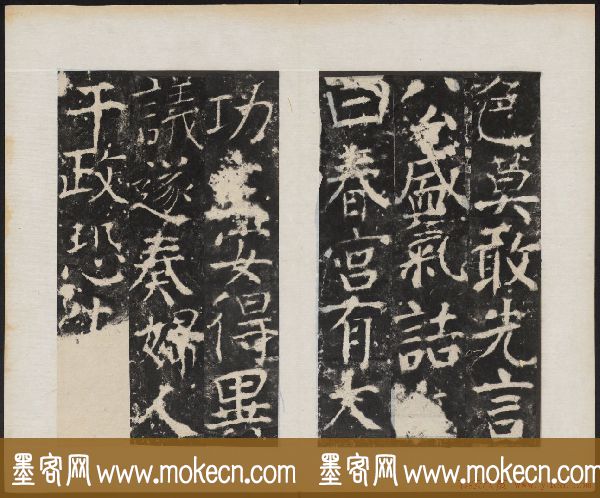 色莫敢先言
公盛氣詰
曰春宮有大
功主安得異
議遂奏婦人
干政恐社
墨客网www.mokecn.com 墨客网www.mokecn.com